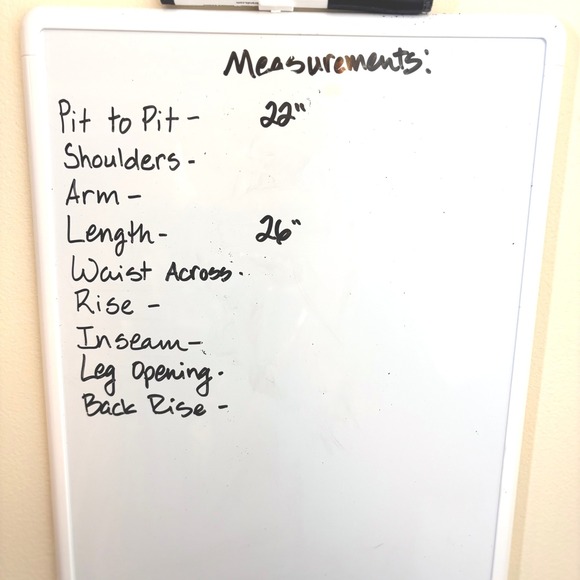 Measurements:
Pit to Pit - 22"
Shoulders -
Arm -
Length - 26"
Waist Across -
Rise -
Inseam -
Leg Opening -
Back Rise -